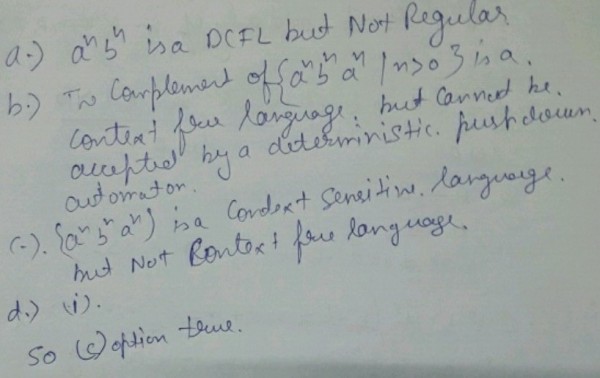 a.) aⁿbⁿ is a DCFL but Not Regular
b.) The Complement of {aⁿbⁿaⁿ | n>0} is a.
Context free language. but cannot be.
accepted by a deterministic. pushdown.
automaton.
(-). {aⁿbⁿaⁿ) is a Context Sensitive. language.
but Not Context free language.
d.) (i).
So (c) option true.